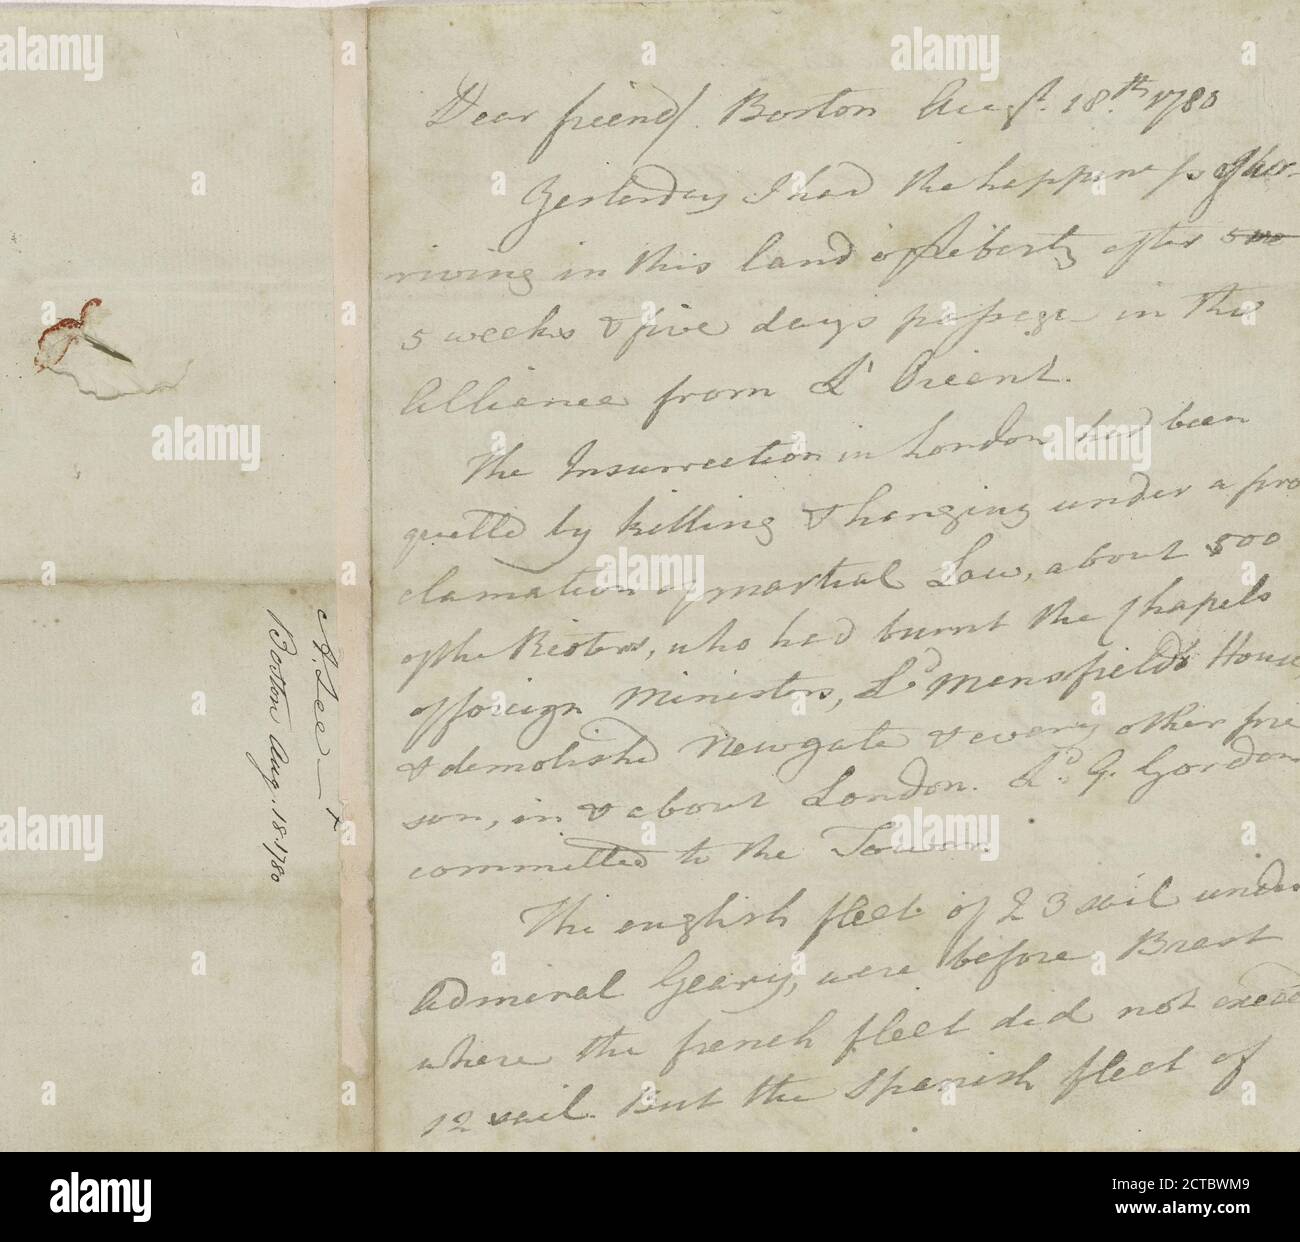 Dear friend/. Boston Augst. 18.th 1780
Yesterday I had the happiness of ar-
riving in this land of liberty after 5 
5 weeks & five days passage in the
Alliance from L' Orient.
The Insurrection in London had been
quelld by killing & hanging under a pro
clamation of martial Law, about 500
of the Rioters, who had burnt the Chapels
of foreign Ministers, Ld. Mansfield's House
& demolishd Newgate & every other pri
son, in & about London. Ld. G. Gordon
committed to the Tower.
The english fleet of 23 sail under
Admiral Geary, were before Brest
where the french fleet did not exceed
12 sail. But the Spanish fleet of
A. Lee —
Boston Aug. 18. 1780
alamy
Image ID: 2CTBWM9
www.alamy.com